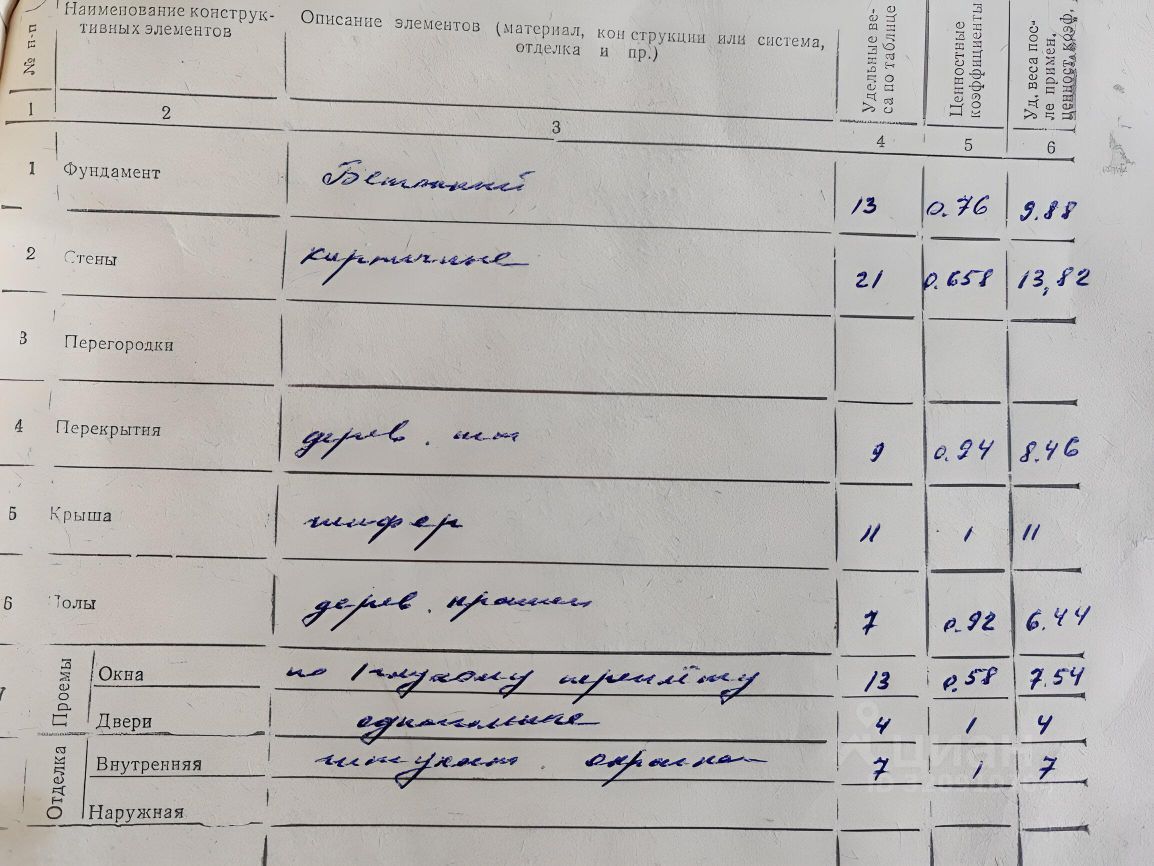 № п-п
Наименование конструк-
тивных элементов
Описание элементов (материал, конструкции или система,
отделка и пр.)
Удельные ве-
са по таблице
Ценностные
коэффициенты
Уд. веса пос-
ле примен.
ценност. коэф.
1 2 3 4 5 6
1 Фундамент Бетонный 13 0.76 9.88
2 Стены кирпичные 21 0.658 13,82
3 Перегородки
4 Перекрытия дерев. 9 0.94 8.46
5 Крыша шифер 11 1 11
6 Полы дерев. крашен 7 0.92 6.44
7 Проемы
Окна по 1 глухому переплёту 13 0.58 7.54
Двери 4 1 4
Отделка
Внутренняя штукат. окраска 7 1 7
Наружная
циан